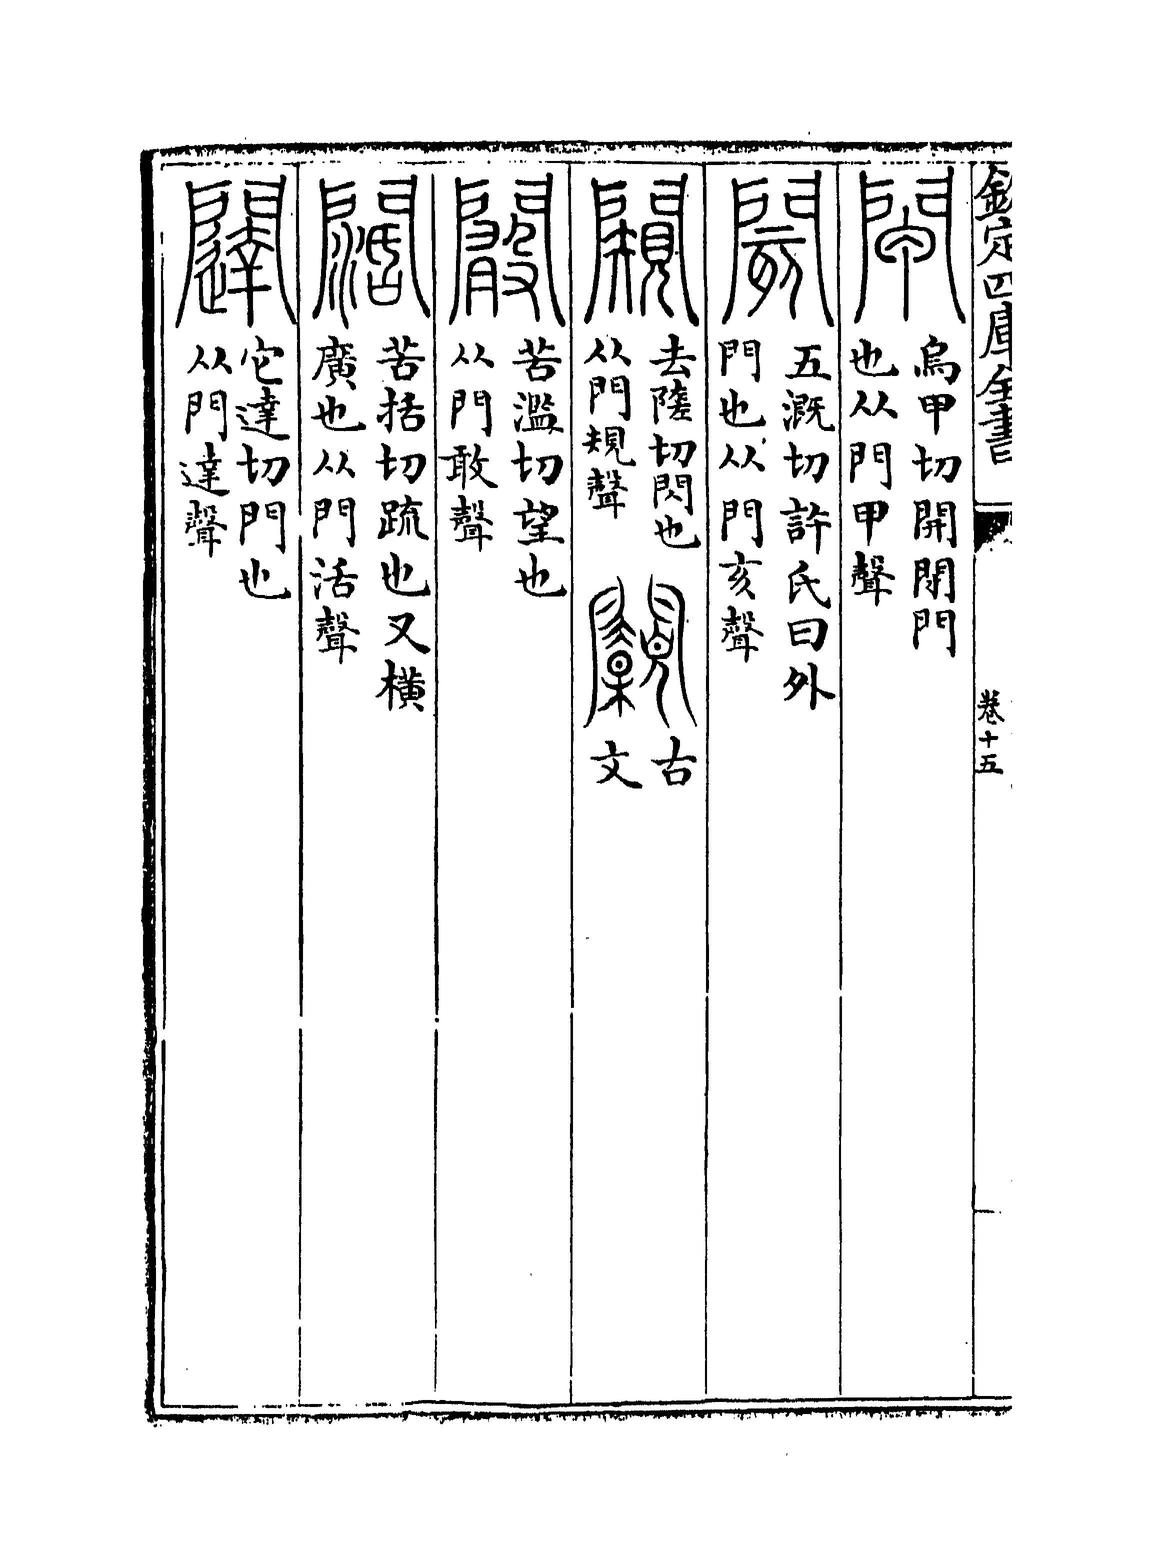 欽定四庫全書
卷十五
閘
烏甲切開閉門
也从門甲聲
閡
五溉切許氏曰外
門也从門亥聲
闚
去隓切閃也
从門規聲
古
文
闞
苦濫切望也
从門敢聲
闊
苦括切疏也又橫
廣也从門活聲
闥
它達切門也
从門達聲